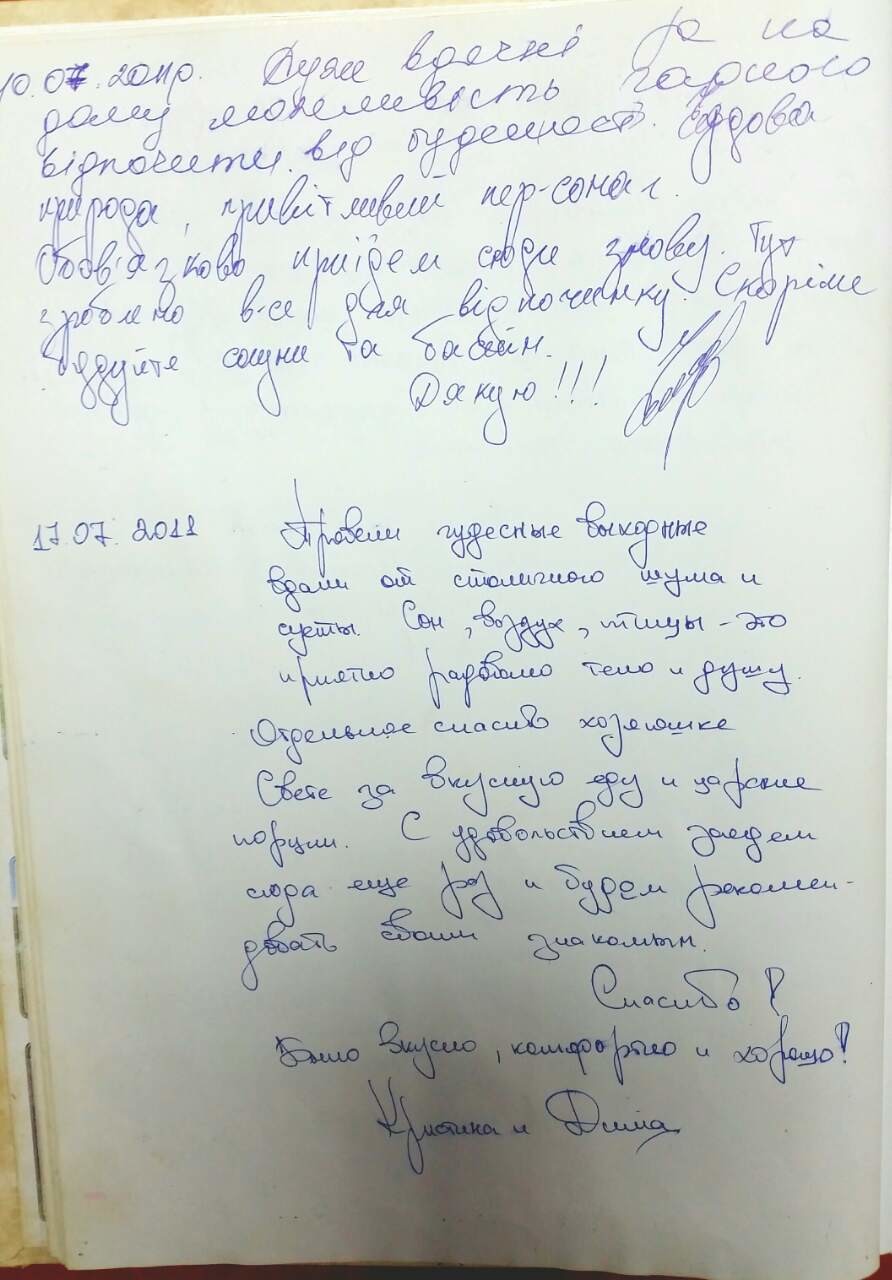 10.07.2011р. Дуже вдячні за на
дану можливість гарного
відпочити від буденності. Чудова
природа, привітливий пер-сонал.
Обов'язково приїдем сюди знову. Тут
зроблено в-се для відпочинку. Скоріше
будуйте сауни та басейн.
Дякую!!!
17.07.2011 Провели чудесные выходные
вдали от столичного шума и
суеты. Сон, воздух, птицы - это
приятно радовало тело и душу.
Отдельное спасибо хозяюшке
Свете за вкусную еду и царские
порции. С удовольствием заедем
сюда еще раз и будем рекомен-
довать своим знакомым.
Спасибо!
Было вкусно, комфортно и хорошо!
Кристина и Дима